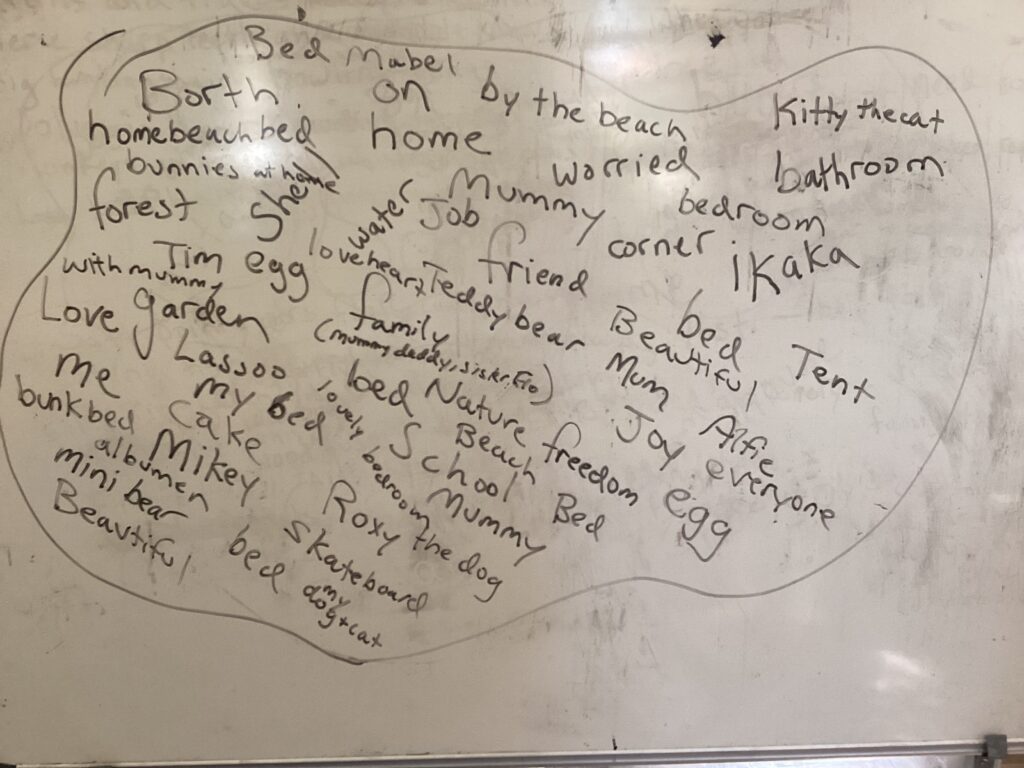 Bed Mabel
Borth on by the beach Kitty the cat
homebeachbed home
bunnies at home worried bathroom
forest Shell water Mummy bedroom
Job
Tim egg loveheart friend corner ikaka
with mummy Teddy bear
Love garden family Beautiful bed Tent
(mummy, daddy, sister, Flo)
Lassoo bed Nature Mum Alfie
me my bed lovely Beach freedom Joy everyone
bunkbed cake School Bed egg
albumen Mikey bedroom Mummy
mini bear Roxy the dog
Beautiful bed skateboard
my
dog + cat